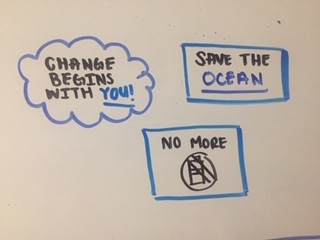 CHANGE
BEGINS
WITH YOU!
SAVE THE
OCEAN
NO MORE